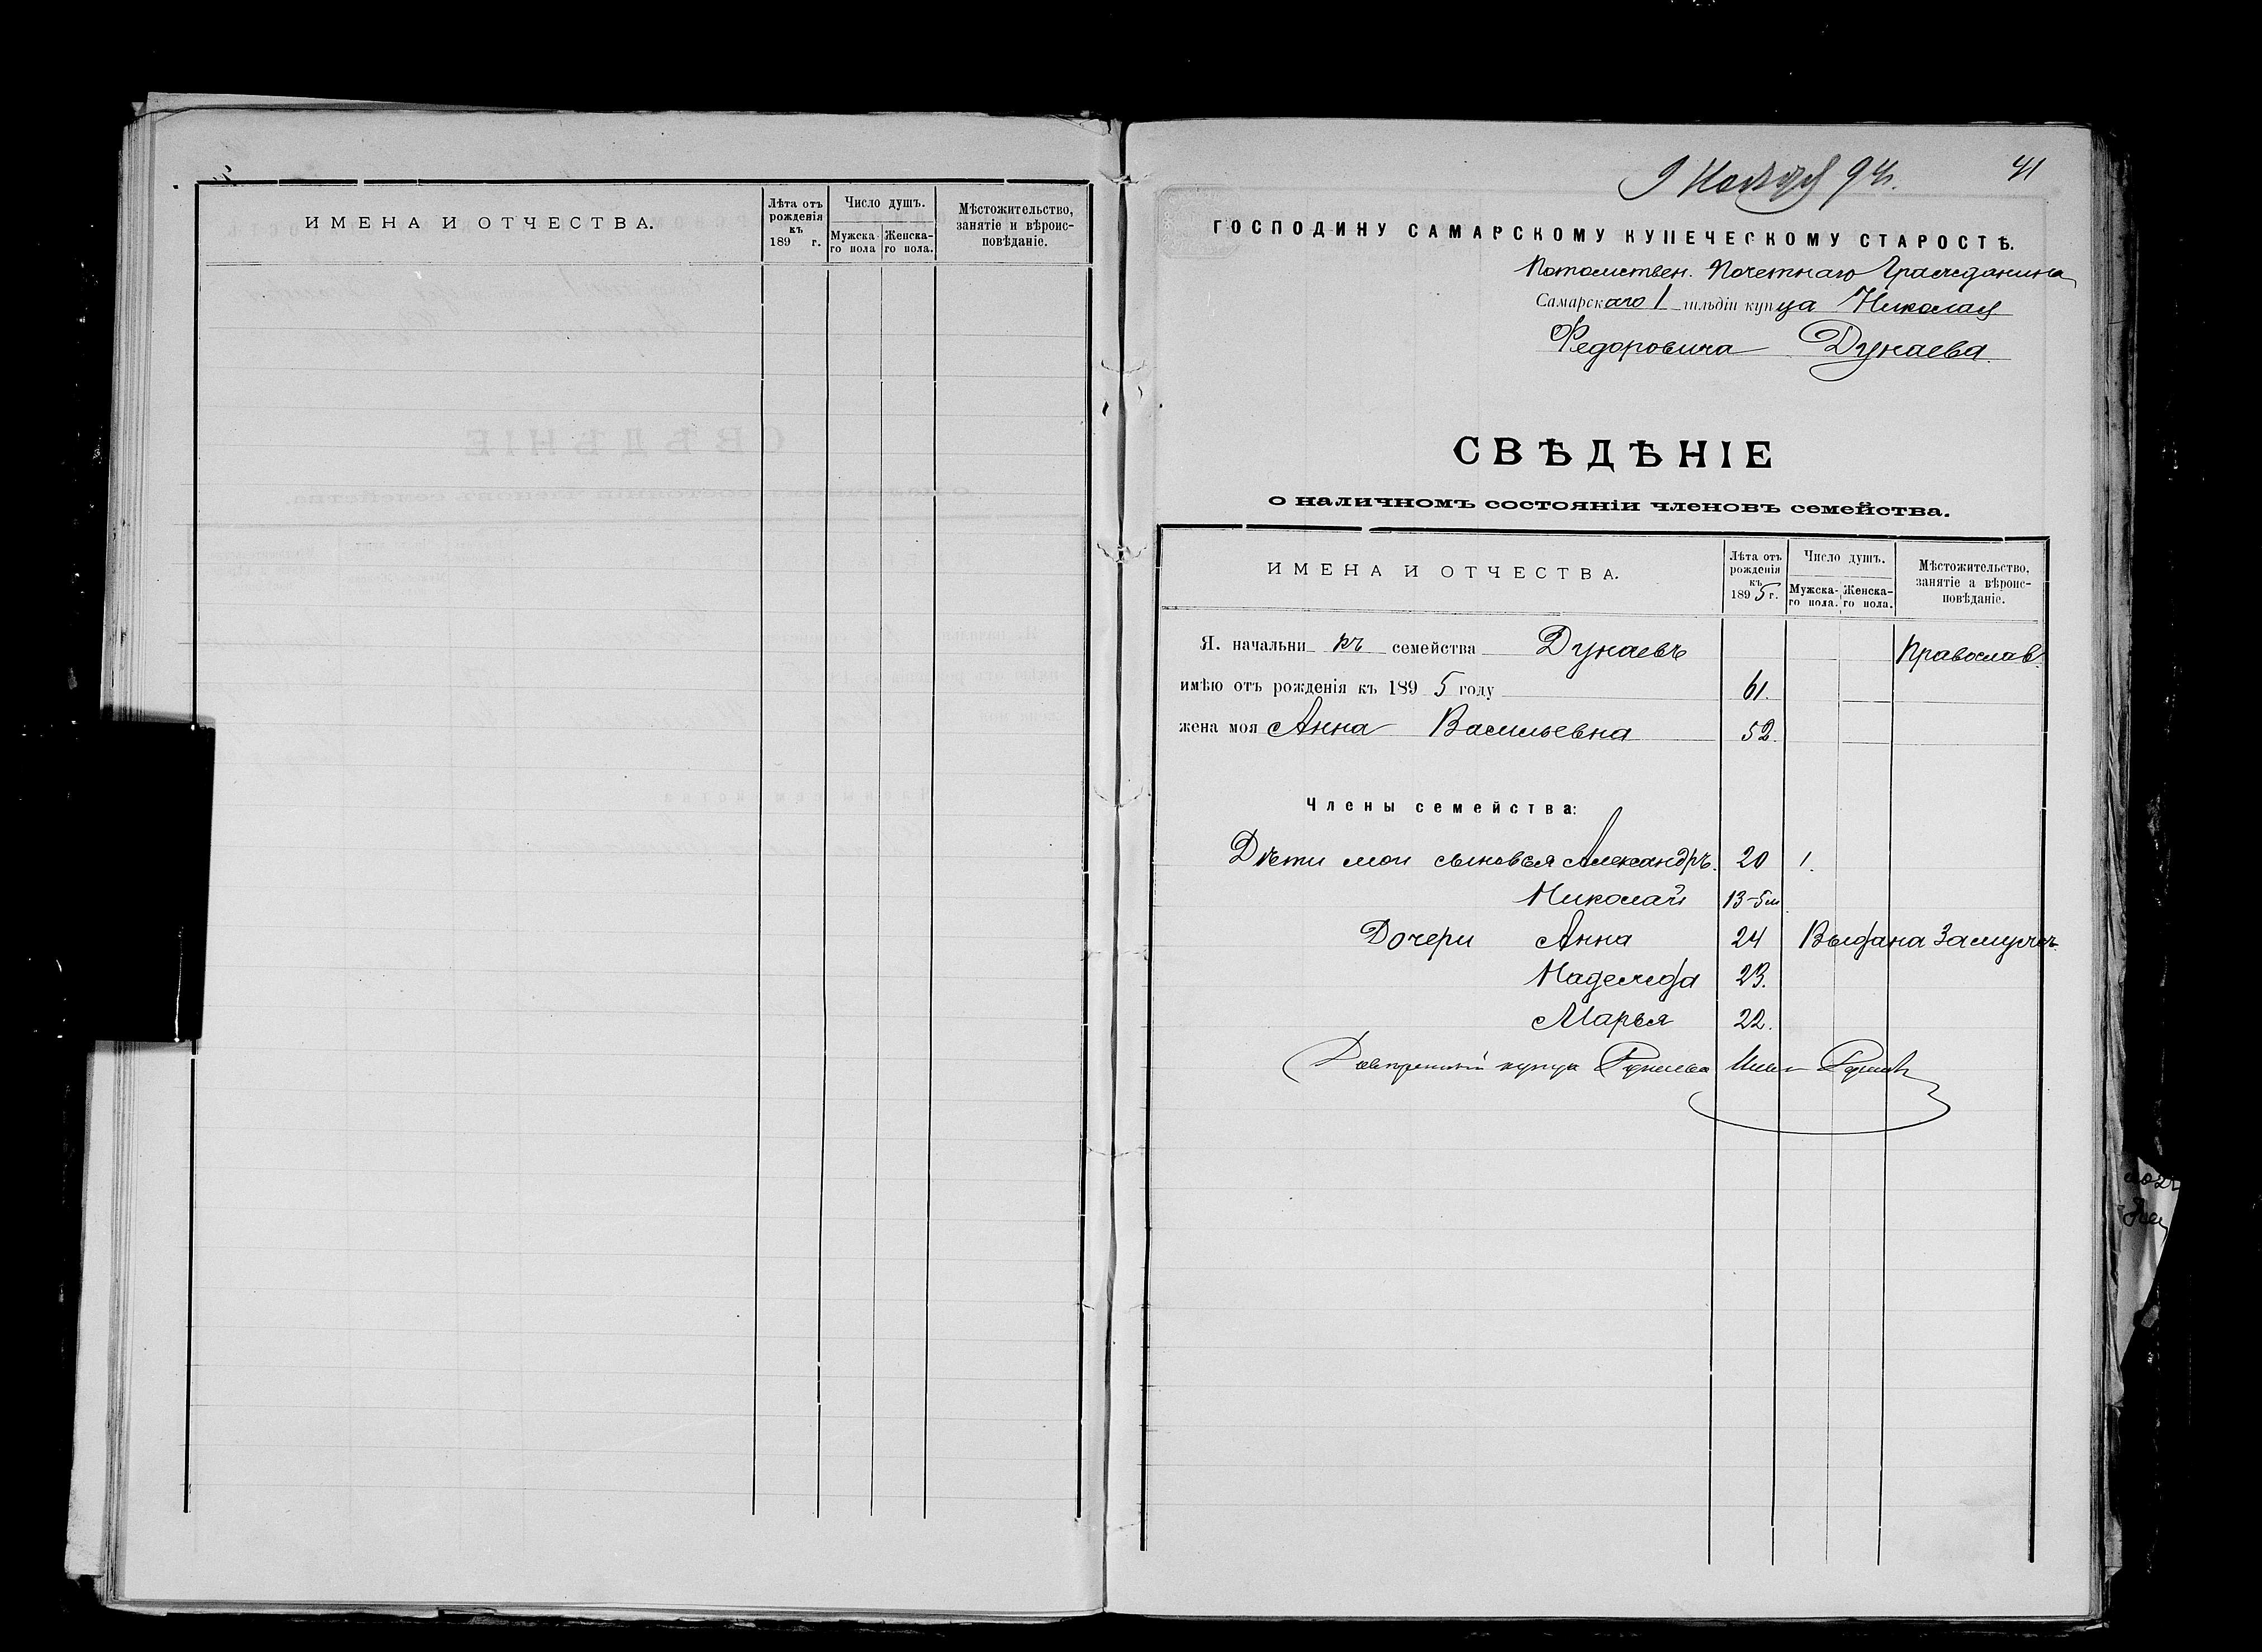 ИМЕНА И ОТЧЕСТВА.
Лѣта отъ рожденія къ 189 г.
Число душъ.
Мужска-го пола
Женска-го пола.
Мѣстожительство, занятіе и вѣроис-повѣданіе.
9 Ноября 94 г.
41
ГОСПОДИНУ САМАРСКОМУ КУПЕЧЕСКОМУ СТАРОСТѢ.
Потомствен. Почетнаго Гражданина
Самарскаго 1 гильдіи купца Николая
Федоровича Дунаева.
СВѢДѢНІЕ
о наличномъ состояніи членовъ семейства.
ИМЕНА И ОТЧЕСТВА.
Лѣта отъ рожденія къ 1895 г.
Число душъ.
Мужска-го пола.
Женска-го пола.
Мѣстожительство, занятіе а вѣроис-повѣданіе.
Я. начальникъ семейства Дунаевъ Православ.
имѣю отъ рожденія къ 1895 году 61.
жена моя Анна Васильевна 52.
Члены семейства:
Дѣти мои сыновья Александръ. 20 1.
Николай 13-5 м
Дочери Анна 24 Выдана Замужъ.
Надежда 23.
Марья 22.
Довѣренный купца Дунаева